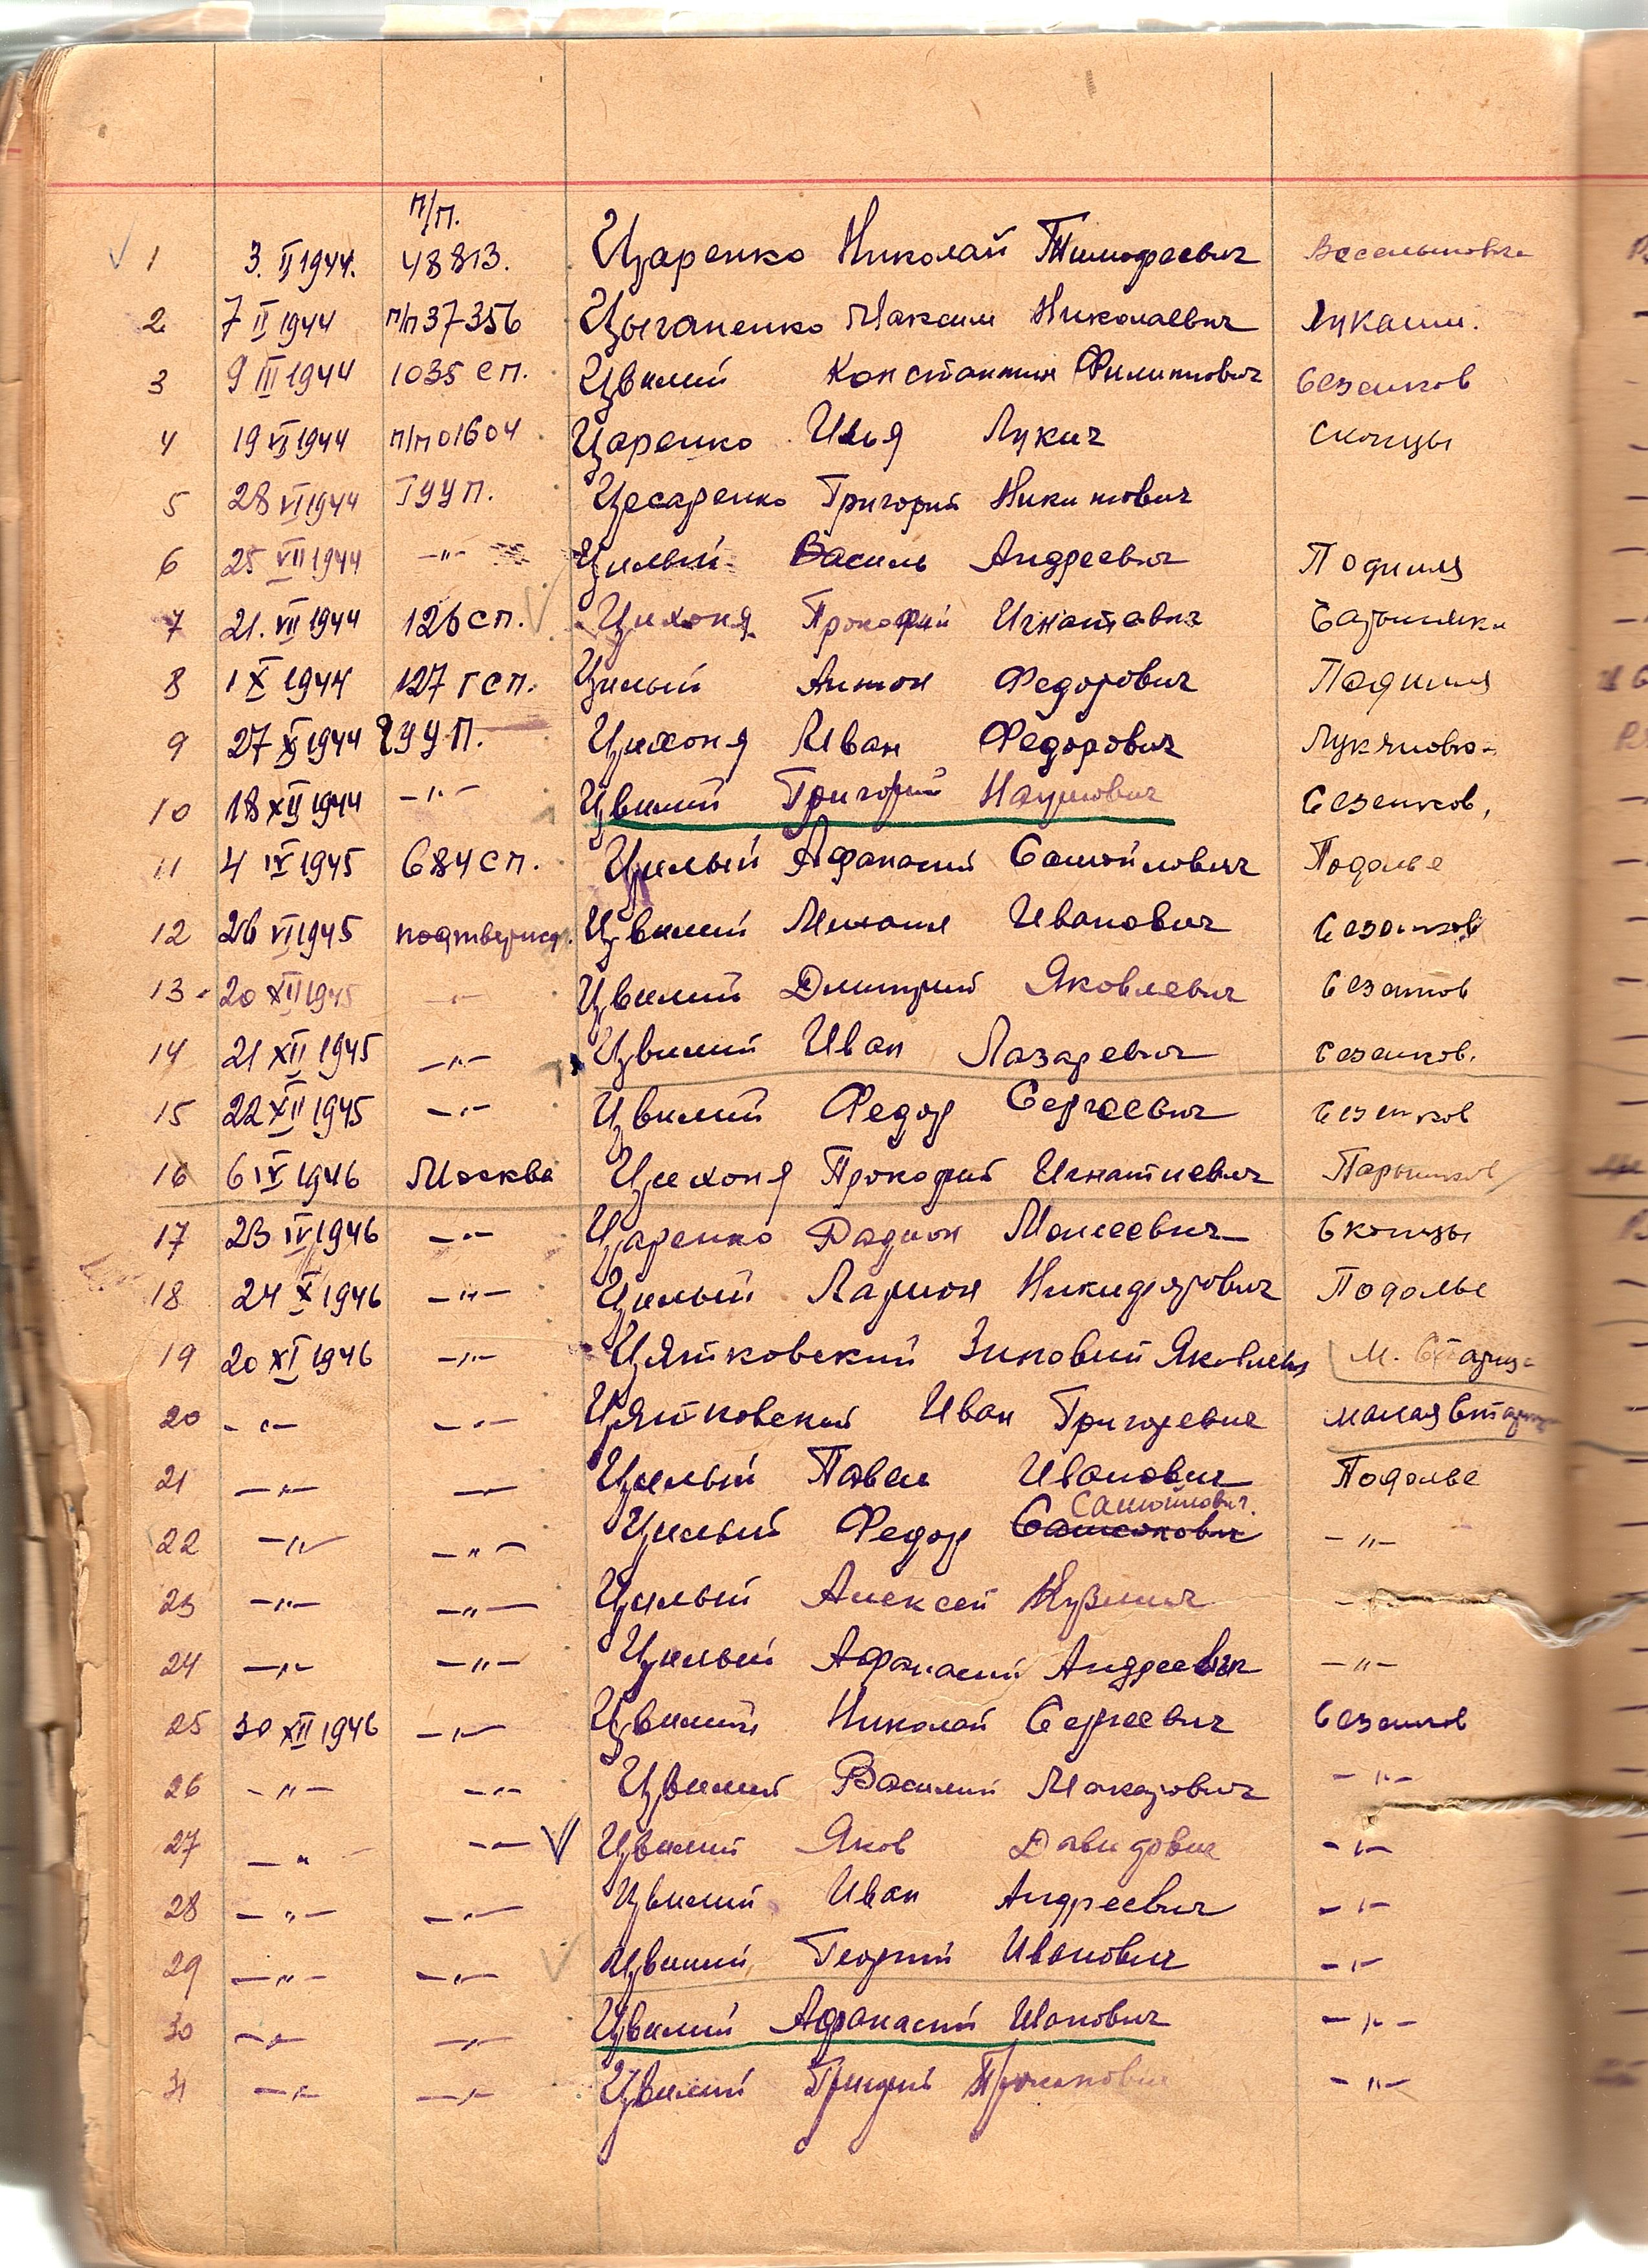 п/п.
1 3. II 1944. 48813. Царенко Николай Тимофеевич
2 7 II 1944 п/п 37356 Цыганенко Максим Николаевич Лукаши.
3 9 III 1944 1035 сп. Цвилий Константин Филиппович Сезенков
4 19 VI 1944 п/п 01604 Царенко Илья Лукич Скопцы
5 28 VI 1944 ГУУП. Цесаренко Григорий Никитович
6 25 VII 1944 -"- Цилый Василь Андреевич
7 21. VII 1944 126 сп. Цихоня Прокофий Игнатавич
8 1 X 1944 127 гсп. Цилый Антон Федорович
9 27 X 1944 ГУУП. Цихоня Иван Федорович
10 18 XII 1944 -"- Цвилий Григорий Наумович Сезенков,
11 4 IV 1945 684 сп. Цилый Афанасий Самойлович Подолье
12 26 VI 1945 подтвержд. Цвилий Михаил Иванович Сезенков
13 20 XII 1945 -"- Цвилий Дмитрий Яковлевич Сезенков
14 21 XII 1945 -"- Цвилий Иван Лазаревич Сезенков.
15 22 XII 1945 -"- Цвилий Федор Сергеевич Сезенков
16 6 IV 1946 Москва Цихоня Прокофий Игнатиевич Парышков
17 23 IV 1946 -"- Царенко Радион Моисеевич Скопцы
18 24 X 1946 -"- Цилый Ларион Никифорович Подолье
19 20 XI 1946 -"- Цятковский Зиновий Яковлевич М. Старица
20 -"- -"- Цятковский Иван Григоревич малая Старица
21 -"- -"- Цилый Павел Иванович Подолье
Самойлович
22 -"- -"- Цилый Федор -"-
23 -"- -"- Цилый Алексей Кузмич -"-
24 -"- -"- Цилый Афанасий Андреевич -"-
25 30 XII 1946 -"- Цвилий Николай Сергеевич Сезенков
26 -"- -"- Цвилий Василий Макарович -"-
27 -"- -"- Цвилий Яков Давидович -"-
28 -"- -"- Цвилий Иван Андреевич -"-
29 -"- -"- Цвилий Георгий Иванович -"-
30 -"- -"- Цвилий Афанасий Иванович -"-
31 -"- -"- Цвилий -"-